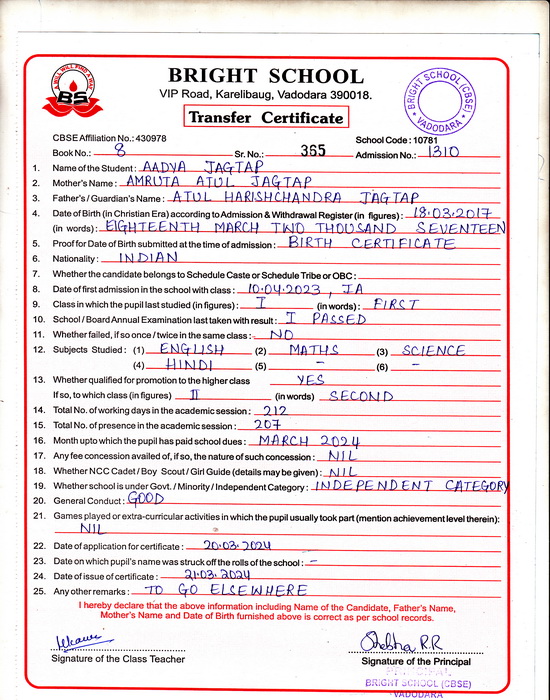 A WILL WILL FIND A WAY
BS
BRIGHT SCHOOL
VIP Road, Karelibaug, Vadodara 390018.
Transfer Certificate
BRIGHT SCHOOL (CBSE)
VADODARA
CBSE Affiliation No.: 430978 School Code : 10781
Book No.: 8 Sr. No.: 365 Admission No.: 1310
1. Name of the Student : AADYA JAGTAP
2. Mother's Name : AMRUTA ATUL JAGTAP
3. Father's / Guardian's Name : ATUL HARISHCHANDRA JAGTAP
4. Date of Birth (in Christian Era) according to Admission & Withdrawal Register (in figures) : 18.03.2017
(in words) : EIGHTEENTH MARCH TWO THOUSAND SEVENTEEN
5. Proof for Date of Birth submitted at the time of admission : BIRTH CERTIFICATE
6. Nationality : INDIAN
7. Whether the candidate belongs to Schedule Caste or Schedule Tribe or OBC :
8. Date of first admission in the school with class : 10.04.2023, IA
9. Class in which the pupil last studied (in figures) : I (in words) : FIRST
10. School / Board Annual Examination last taken with result : I PASSED
11. Whether failed, if so once / twice in the same class : NO
12. Subjects Studied : (1) ENGLISH (2) MATHS (3) SCIENCE
(4) HINDI (5) - (6) -
13. Whether qualified for promotion to the higher class YES
If so, to which class (in figures) II (in words) SECOND
14. Total No. of working days in the academic session : 212
15. Total No. of presence in the academic session : 207
16. Month upto which the pupil has paid school dues : MARCH 2024
17. Any fee concession availed of, if so, the nature of such concession : NIL
18. Whether NCC Cadet / Boy Scout / Girl Guide (details may be given) : NIL
19. Whether school is under Govt. / Minority / Independent Category : INDEPENDENT CATEGORY
20. General Conduct : GOOD
21. Games played or extra-curricular activities in which the pupil usually took part (mention achievement level therein):
NIL
22. Date of application for certificate : 20.03.2024
23. Date on which pupil's name was struck off the rolls of the school : -
24. Date of issue of certificate : 21.03.2024
25. Any other remarks : TO GO ELSEWHERE
I hereby declare that the above information including Name of the Candidate, Father's Name,
Mother's Name and Date of Birth furnished above is correct as per school records.
Shobha R.R
Signature of the Class Teacher Signature of the Principal
PRINCIPAL
BRIGHT SCHOOL (CBSE)
VADODARA